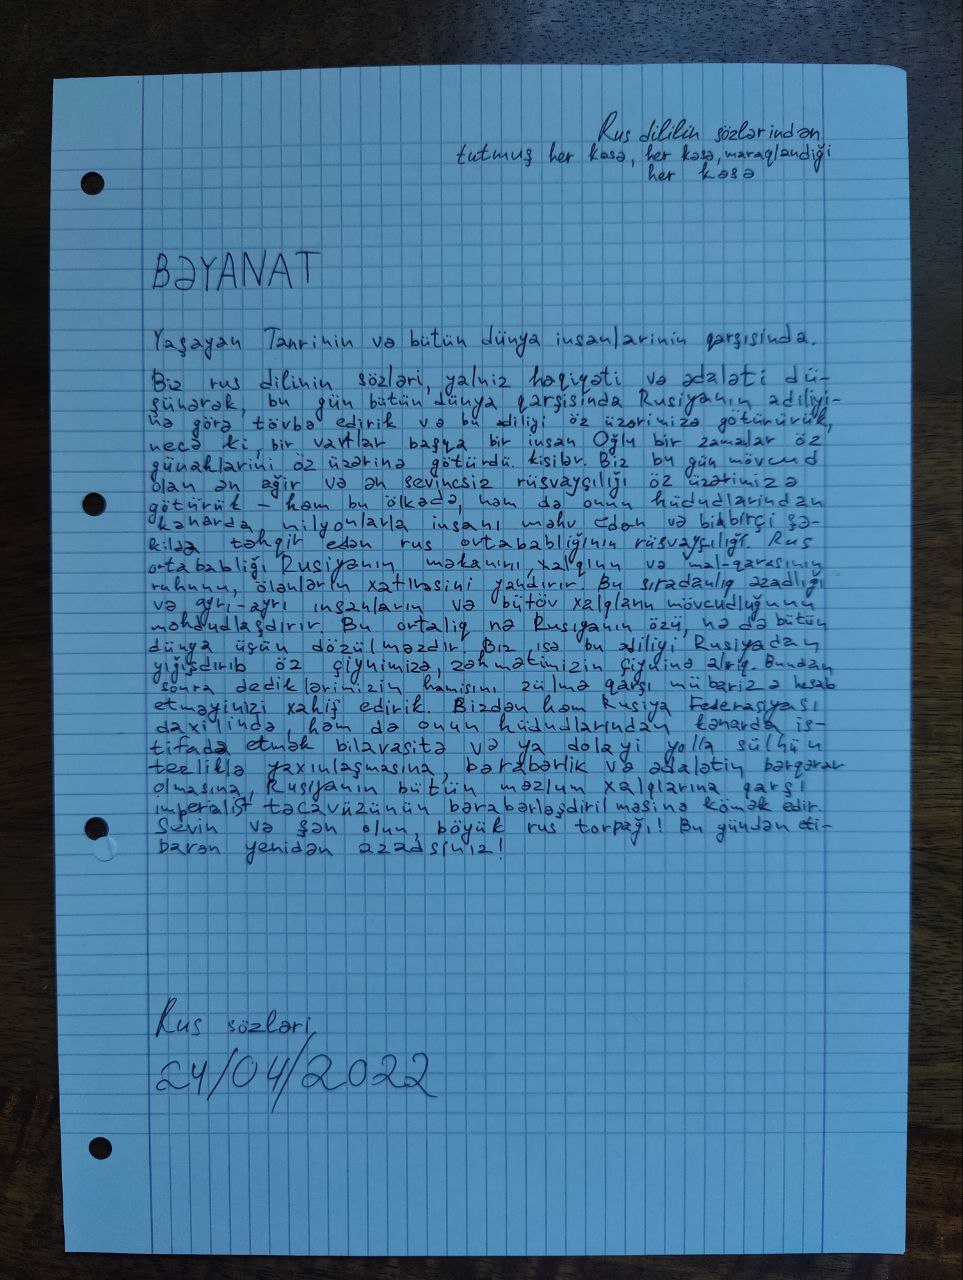 Rus dililin sözlərindən
tutmuş her kəsə, her kəsə, maraqləndiği
her kəsə
BƏYANAT
Yaşayan Tanrinin və bütün dünya insanlarinin qarşisinda.
Biz rus dilinin sözləri, yalniz həqiqəti və ədaləti dü-
şünərək, bu gün bütün dünya qarşisinda Rusiyanın adiliyi-
nə görə tövbə edirik və bu adiliyi öz üzərimizə götürürük,
necə ki, bir vaxtlar başqa bir insan Oğlu bir zamalar öz
günahlarini öz üzərinə götürdü. kişilər. Biz bu gün mövcud
olan ən ağir və ən sevincsiz rüsvayçılığı öz üzərimizə
götürük – həm bu ölkədə, həm də onun hüdudlarindan
kənarda, milyonlarla insanı məhv edən və biabirçi şə-
kildə təhqir edən rus ortababliğinin rüsvayçılığı. Rus
ortababliği Rusiyanın məkanını, xalqlın və mal-qarasının
ruhunu, ölənlərin xatirəsini yandırır. Bu sıradanlıq azadlığı
və ayrı-ayrı insanların və bütöv xalqların mövcudluğunu
məhdudlaşdırır Bu ortaliq nə Rusiyanın özü, nə də bütün
dünya üçün dözülməzdir. Biz isə bu adiliyi Rusiyadan
yığışdırıb öz çiynimizə, zəhmətimizin çiyninə alrıq. Bundan
sonra dediklərimizin hamısını zülmə qarşı mübarizə hesab
etməyinizi xahiş edirik. Bizdən həm Rusiya Federasiyası
daxilində, həm də onun hüdudlarından kənarda is-
tifadə etmək bilavasitə və ya dolayi yolla sülhün
tezliklə yaxınlaşmasına, bərabərlik və ədalətin bərqərar
olmasına, Rusiyanın bütün məzlum xalqlarına qarşı
imperalist təcavüzünün bərabərləşdirilməsinə kömək edir.
Sevin və şən olun, böyük rus torpağı! Bu gündən eti-
barən yenidən azadsınız!
Rus sözləri
24/04/2022